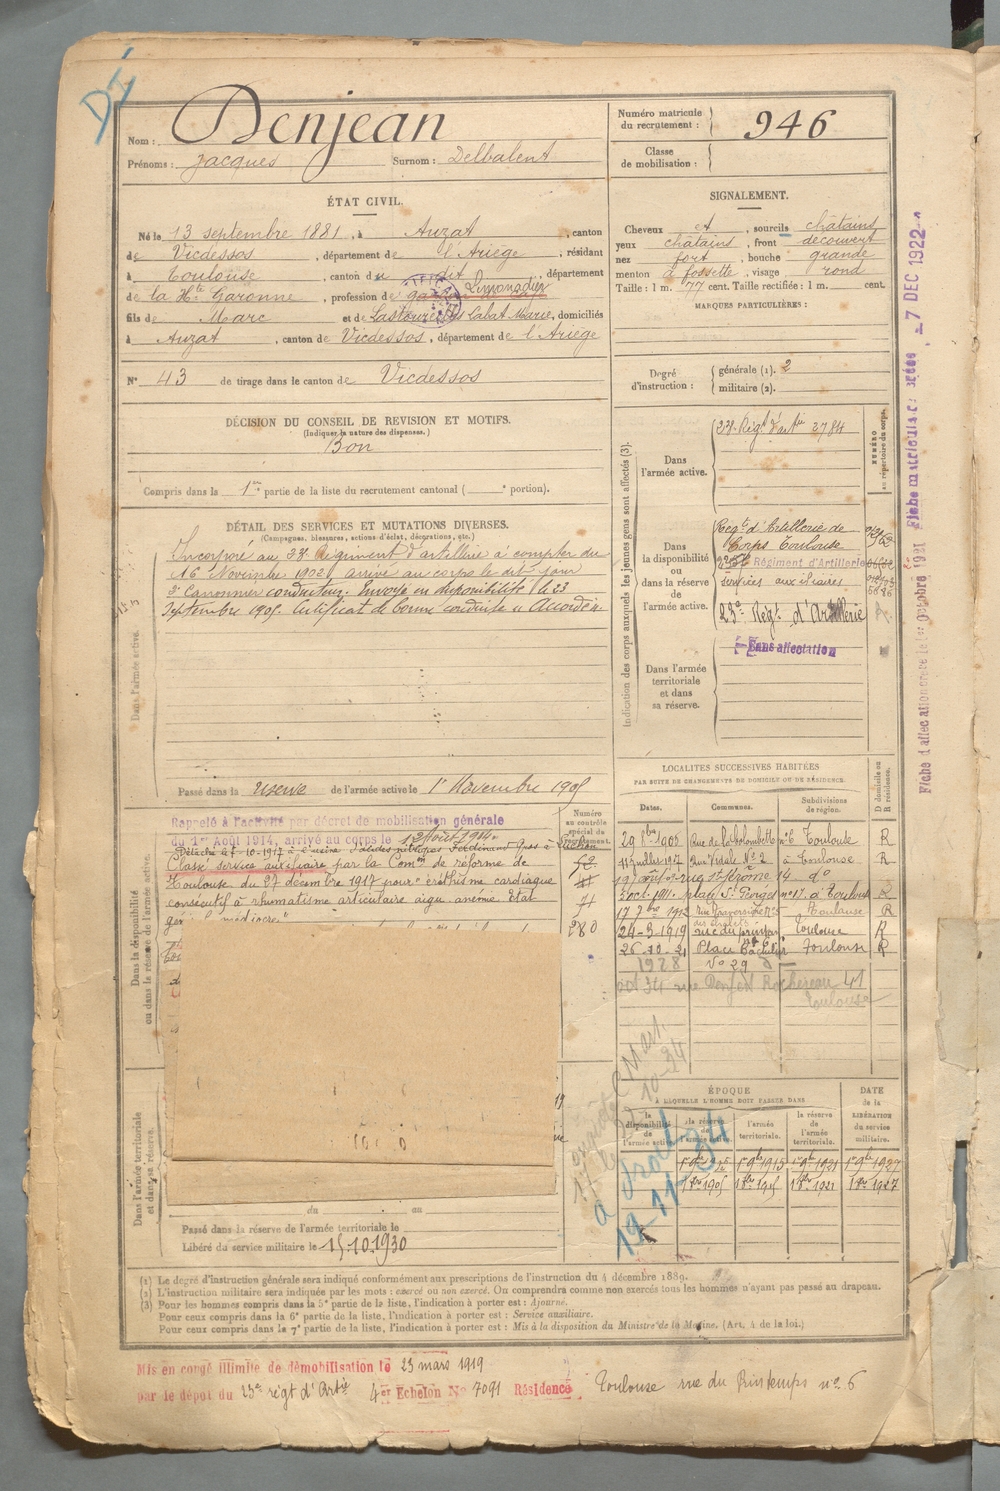 DI
Nom : Denjean
Prénoms : Jacques Surnom : Delbalent
Numéro matricule du recrutement : 946
Classe de mobilisation :
ÉTAT CIVIL.
Né le 13 septembre 1881, à Auzat, canton
de Vicdessos, département de l'Ariège, résidant
à Toulouse, canton du dit, département
de la Hte Garonne, profession de Limonadier
fils de Marc et de Cabat Marie, domiciliés
à Auzat, canton de Vicdessos, département de l'Ariège
N° 43 de tirage dans le canton de Vicdessos
SIGNALEMENT.
Cheveux et, sourcils châtains
yeux châtains, front découvert
nez fort, bouche grande
menton à fossette, visage rond
Taille : 1 m. 77 cent. Taille rectifiée : 1 m. cent.
MARQUES PARTICULIÈRES :
Degré d'instruction : générale (1). 2
militaire (2).
DÉCISION DU CONSEIL DE REVISION ET MOTIFS.
(Indiquer la nature des dispenses.)
Bon
Compris dans la 1re partie de la liste du recrutement cantonal ( e portion).
DÉTAIL DES SERVICES ET MUTATIONS DIVERSES.
(Campagnes, blessures, actions d'éclat, décorations, etc.)
Incorporé au 23e Régiment d'artillerie à compter du
16 Novembre 1902, arrivé au corps le dit jour
2e Canonnier conducteur. Envoyé en disponibilité le 23
Septembre 1905. Certificat de bonne conduite "Accordé".
Dans l'armée active.
Passé dans la réserve de l'armée active le 1er Novembre 1905
Indication des corps auxquels les jeunes gens sont affectés (3).
NUMÉRO au répertoire du corps.
Dans l'armée active.
23e Régt d'artie 3784
Dans la disponibilité ou dans la réserve de l'armée active.
Regt d'Artillerie de
Corps Toulouse
Régiment d'Artillerie
services auxiliaires
23e Régt d'Artillerie
Sans affectation
Dans l'armée territoriale et dans sa réserve.
Fiche d'affectation créée le 1er octobre 1921 Fiche matricule créée - 7 DEC 1922
Dans la disponibilité ou dans la réserve de l'armée active.
Rappelé à l'activité par décret de mobilisation générale
du 1er Août 1914, arrivé au corps le 12 Août 1914.
Détaché le 7-10-1917 à
Classé service auxiliaire par la Comon de réforme de
Toulouse du 27 décembre 1917 pour "éréthisme cardiaque
consécutif à rhumatisme articulaire aigu. anémie. Etat
général médiocre."
Numéro au contrôle spécial du recrutement.
280
LOCALITÉS SUCCESSIVES HABITÉES
PAR SUITE DE CHANGEMENTS DE DOMICILE OU DE RÉSIDENCE.
Dates. Communes. Subdivisions de région. D domicile ou R résidence.
29 8bre 1905 Rue de la Colombette n° 6 Toulouse R
11 juillet 1907 Rue Vidale N° 2 à Toulouse R
rue St Jérôme 14 do
3 oct. 1911 place St Georges n° 17 à Toulouse R
17 7bre 1912 Toulouse R
24-3-1919 rue du printemps Toulouse R
26-10-21 Place Toulouse R
1928 N° 29
oct 34 rue Denfert Rochereau 41
Toulouse
ÉPOQUE
À LAQUELLE L'HOMME DOIT PASSER DANS
la disponibilité de l'armée active.
la réserve de l'armée active.
l'armée territoriale.
la réserve de l'armée territoriale.
DATE de la LIBÉRATION du service militaire.
1er 9bre 1915 1er 9bre 1921 1er 9bre 1927
1er 8bre 1905 1er 8bre 1915 1er 8bre 1921 1er 8bre 1927
19-11-34
Dans l'armée territoriale et dans sa réserve.
du au
Passé dans la réserve de l'armée territoriale le
Libéré du service militaire le 15.10.1930
(1) Le degré d'instruction générale sera indiqué conformément aux prescriptions de l'instruction du 4 décembre 1889.
(2) L'instruction militaire sera indiquée par les mots : exercé ou non exercé. On comprendra comme non exercés tous les hommes n'ayant pas passé au drapeau.
(3) Pour les hommes compris dans la 5e partie de la liste, l'indication à porter est : Ajourné.
Pour ceux compris dans la 6e partie de la liste, l'indication à porter est : Service auxiliaire.
Pour ceux compris dans la 7e partie de la liste, l'indication à porter est : Mis à la disposition du Ministre de la Marine. (Art. 4 de la loi.)
Mis en congé illimité de démobilisation le 23 mars 1919
par le dépôt du 23e régt d'Artie 4e Echelon N° 7091 Résidence Toulouse rue du Printemps n° 6